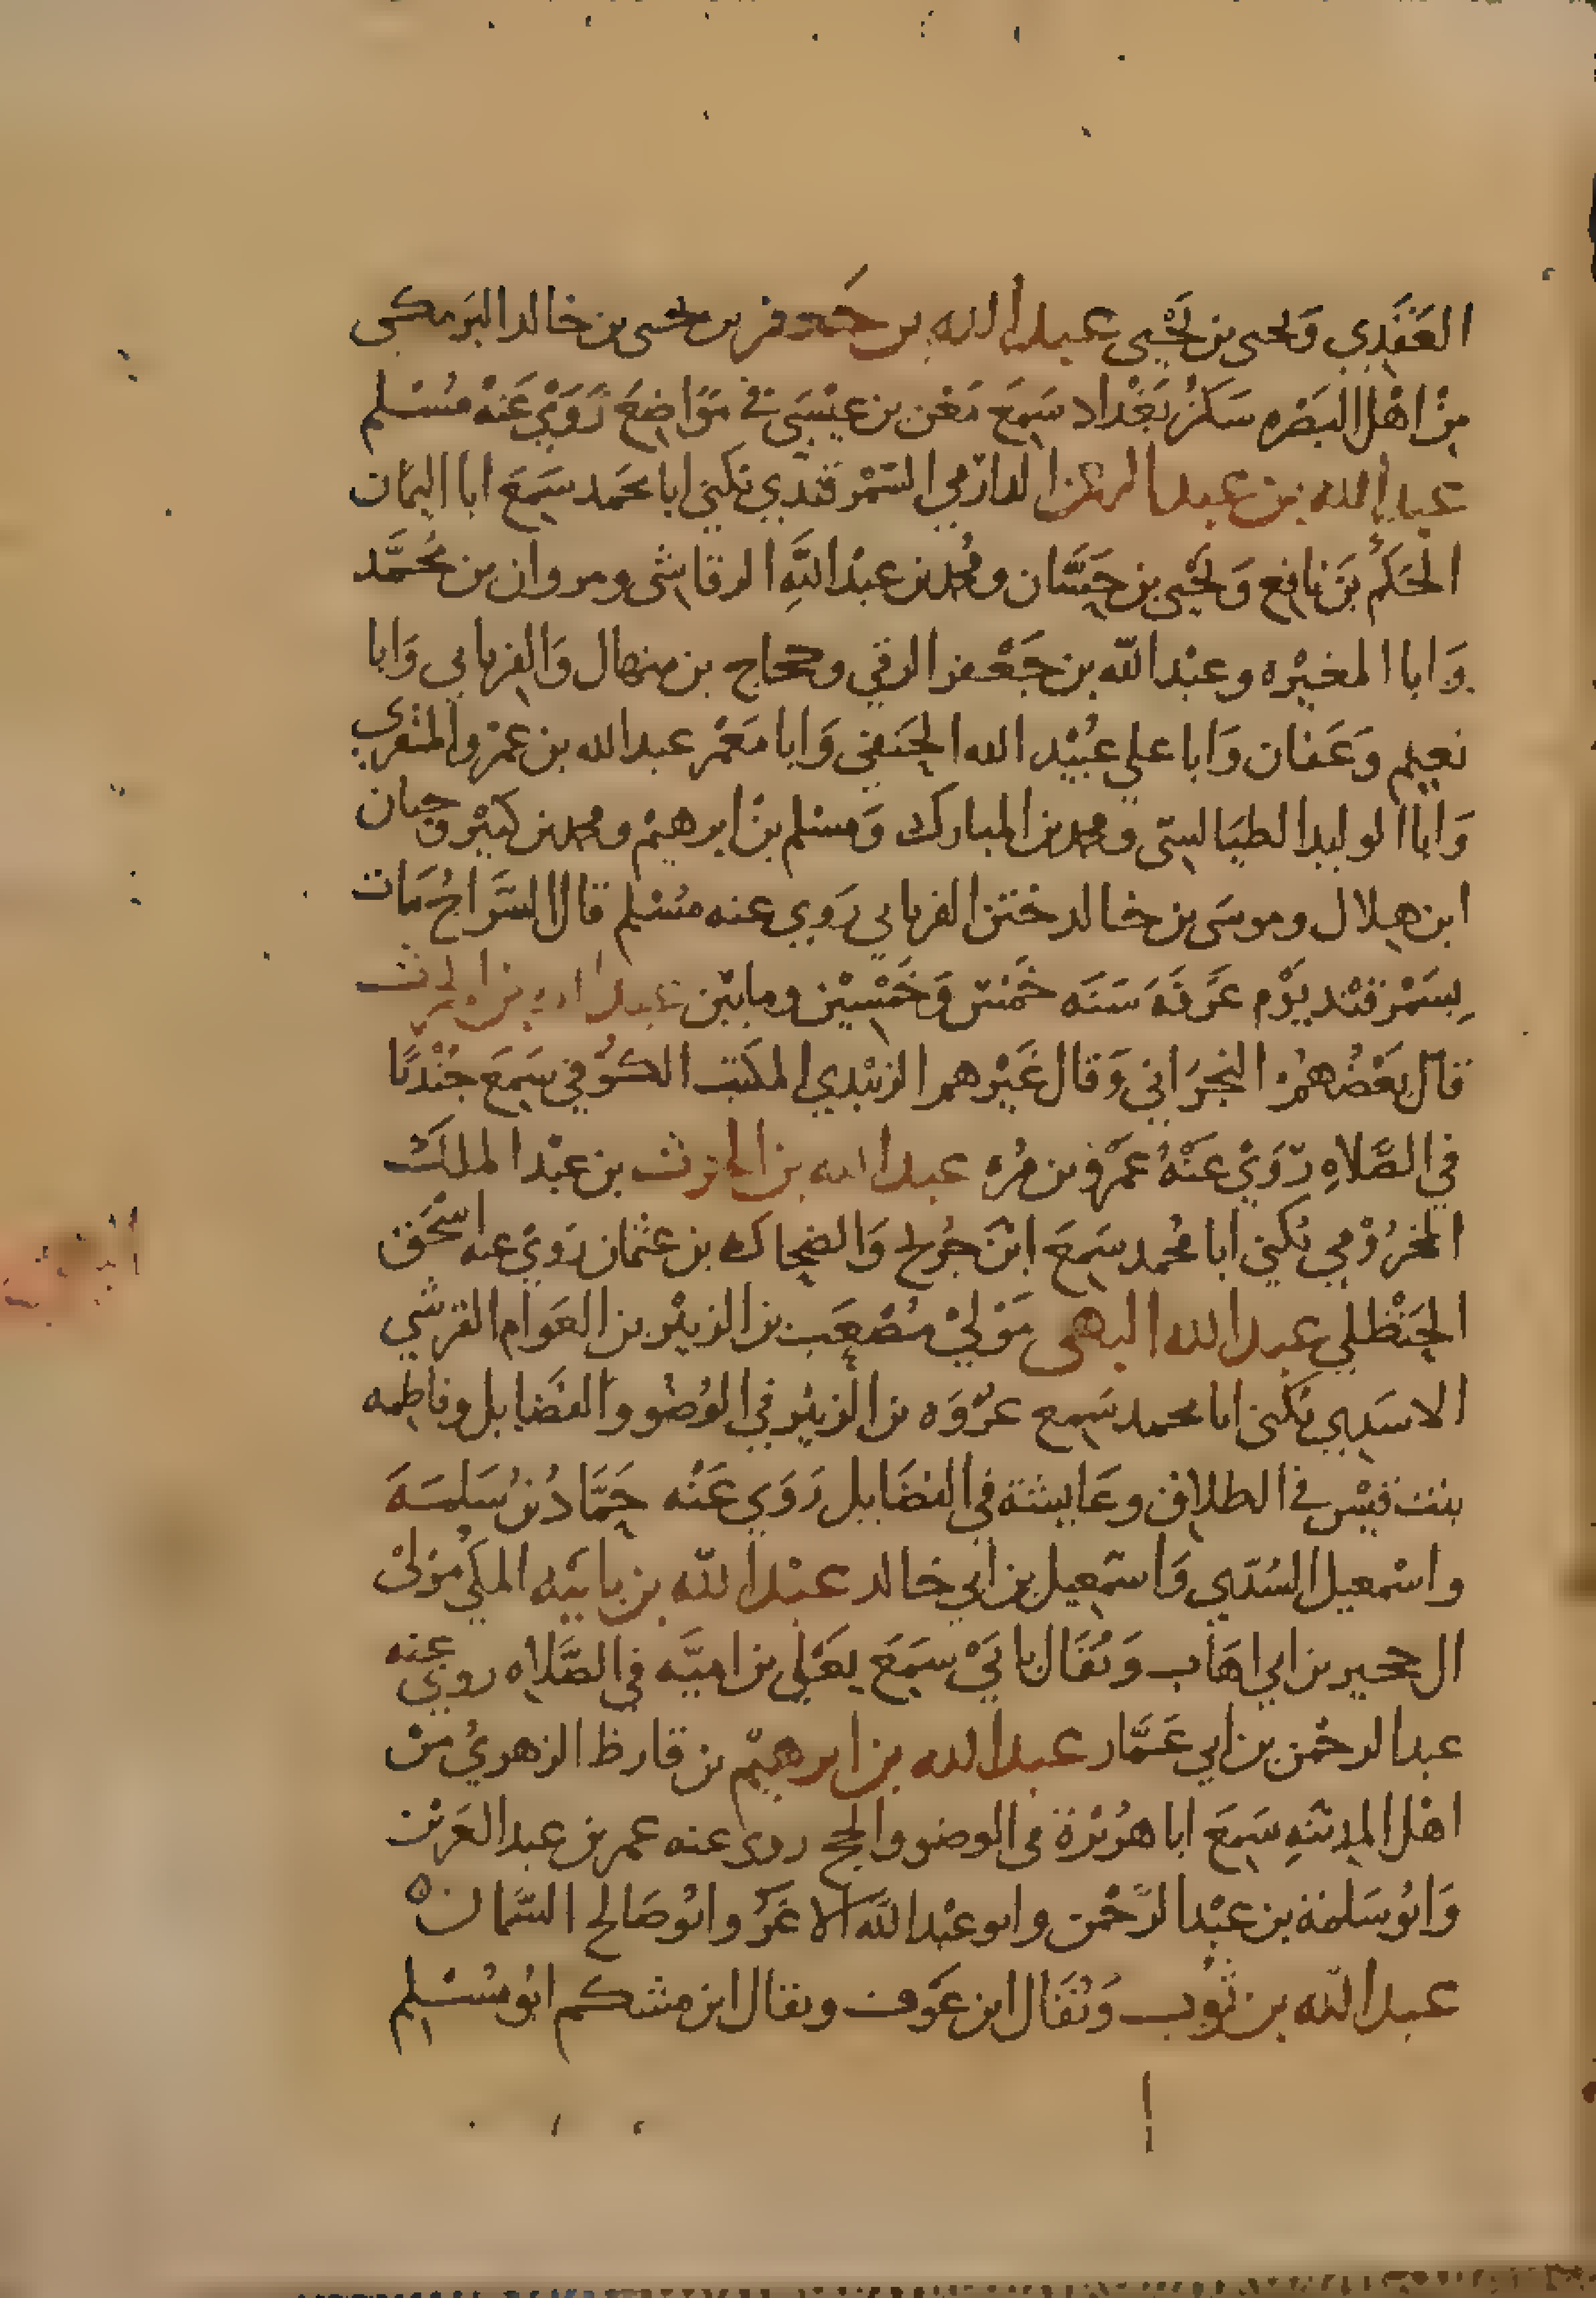 العَقَدِي وَيحيى بن يَحْيى عبد الله بن جَعفر بن يحيى بن خالد البَرمكي
مِنْ اهْل البَصْره سَكَنَ بَغْداد سَمِعَ مَعْن بن عِيْسَى في مَوَاضِعَ رَوَيْ عَنْهُ مُسْلم
عبد الله بن عبد الرحمن الدارمي السَّمْرقندي يكنى ابا محَمد سَمِعَ ابا اليمَان
الحَكَمُ بنَ نافِع وَيَحْيى بن حَسَّان ومُحمد بن عبْد اللَّهِ الرقاشي ومروان بن مُحَمَّد
وَابا المغيْره وعبْد اللّه بن جَعْفر الرقي وحجاج بن منهال وَالفريابي وَابا
نعيم وَعَفان وَابا علي عبُيْد الله الحَنفي وَابا مَعْمَر عبد الله بن عمْرو المنقري
وَابا الوليد الطيَالسي ومحمد بن المبارك وَمسلم بن ابرهيْم ومحمد بن كثيْر وحبان
ابن هِلال وموسَى بن خالد ختن الفريابي رَوي عنه مسُلم قال السَّراجُ مَات
بِسَمْرقند يَوْم عَرَفَهَ سَنَه خَمْس وَخَمْسِيْن ومايتَين عبد الله بن الحرث
قال بَعْضُهُمْ النجرَاني وَقال غَيْرهم الزبيدي المكتب الكوُفي سَمِعَ جُنْدبًا
في الصَّلاهِ رَوَيْ عَنْهُ عَمْرو بن مُره عبد الله بن الحرث بن عبْد الملك
المخزوْمي يُكني ابا مُحمد سَمِعَ ابنَ جُريج وَالضحاك بن عثمان رَوَيْ عنه اسْحَق
الحَنْظلي عبد الله البهي مَوْليْ مُصْعَب بن الزبيْر بن العَوام القرشي
الاسَدِي يُكنى ابا محمد سَمِع عرُوَه بن الزبيْر في الوُضو وَالفضَايل وفاطمه
بنت قيْس في الطلاق وعَايشة في الفضَايل رَوَي عَنْه حَمَّادُ بنُ سَلمَهَ
واسْمعيل السُدّي وَاسمَعِيل بن ابي خالد عبْد اللّه بن بابَيْه المكي مَوْليْ
ال حجير بن ابي اهَاب وَيُقَال بابَيْ سَمِعَ يعْلى بن اميَّه في الصَّلاه روي عنه
عبد الرحمْن بن ابي عَمَّار عبد الله بن ابرهيْم بن قارظ الزهريُ مِنْ
اهْل المدينَهِ سَمِعَ ابا هرُيْرَة في الوضو والحج روى عنه عمر بن عبد العَزيْز
وَابوُ سَلمَة بن عبْد الرَّحْمن وابو عبْد اللَّه الاغَرُّ وابوُ صَالح السَّمان ه
عبد الله بن ثوُب وَيُقَال ابن عَوف ويقال ابن مشكم ابُو مُسْلم